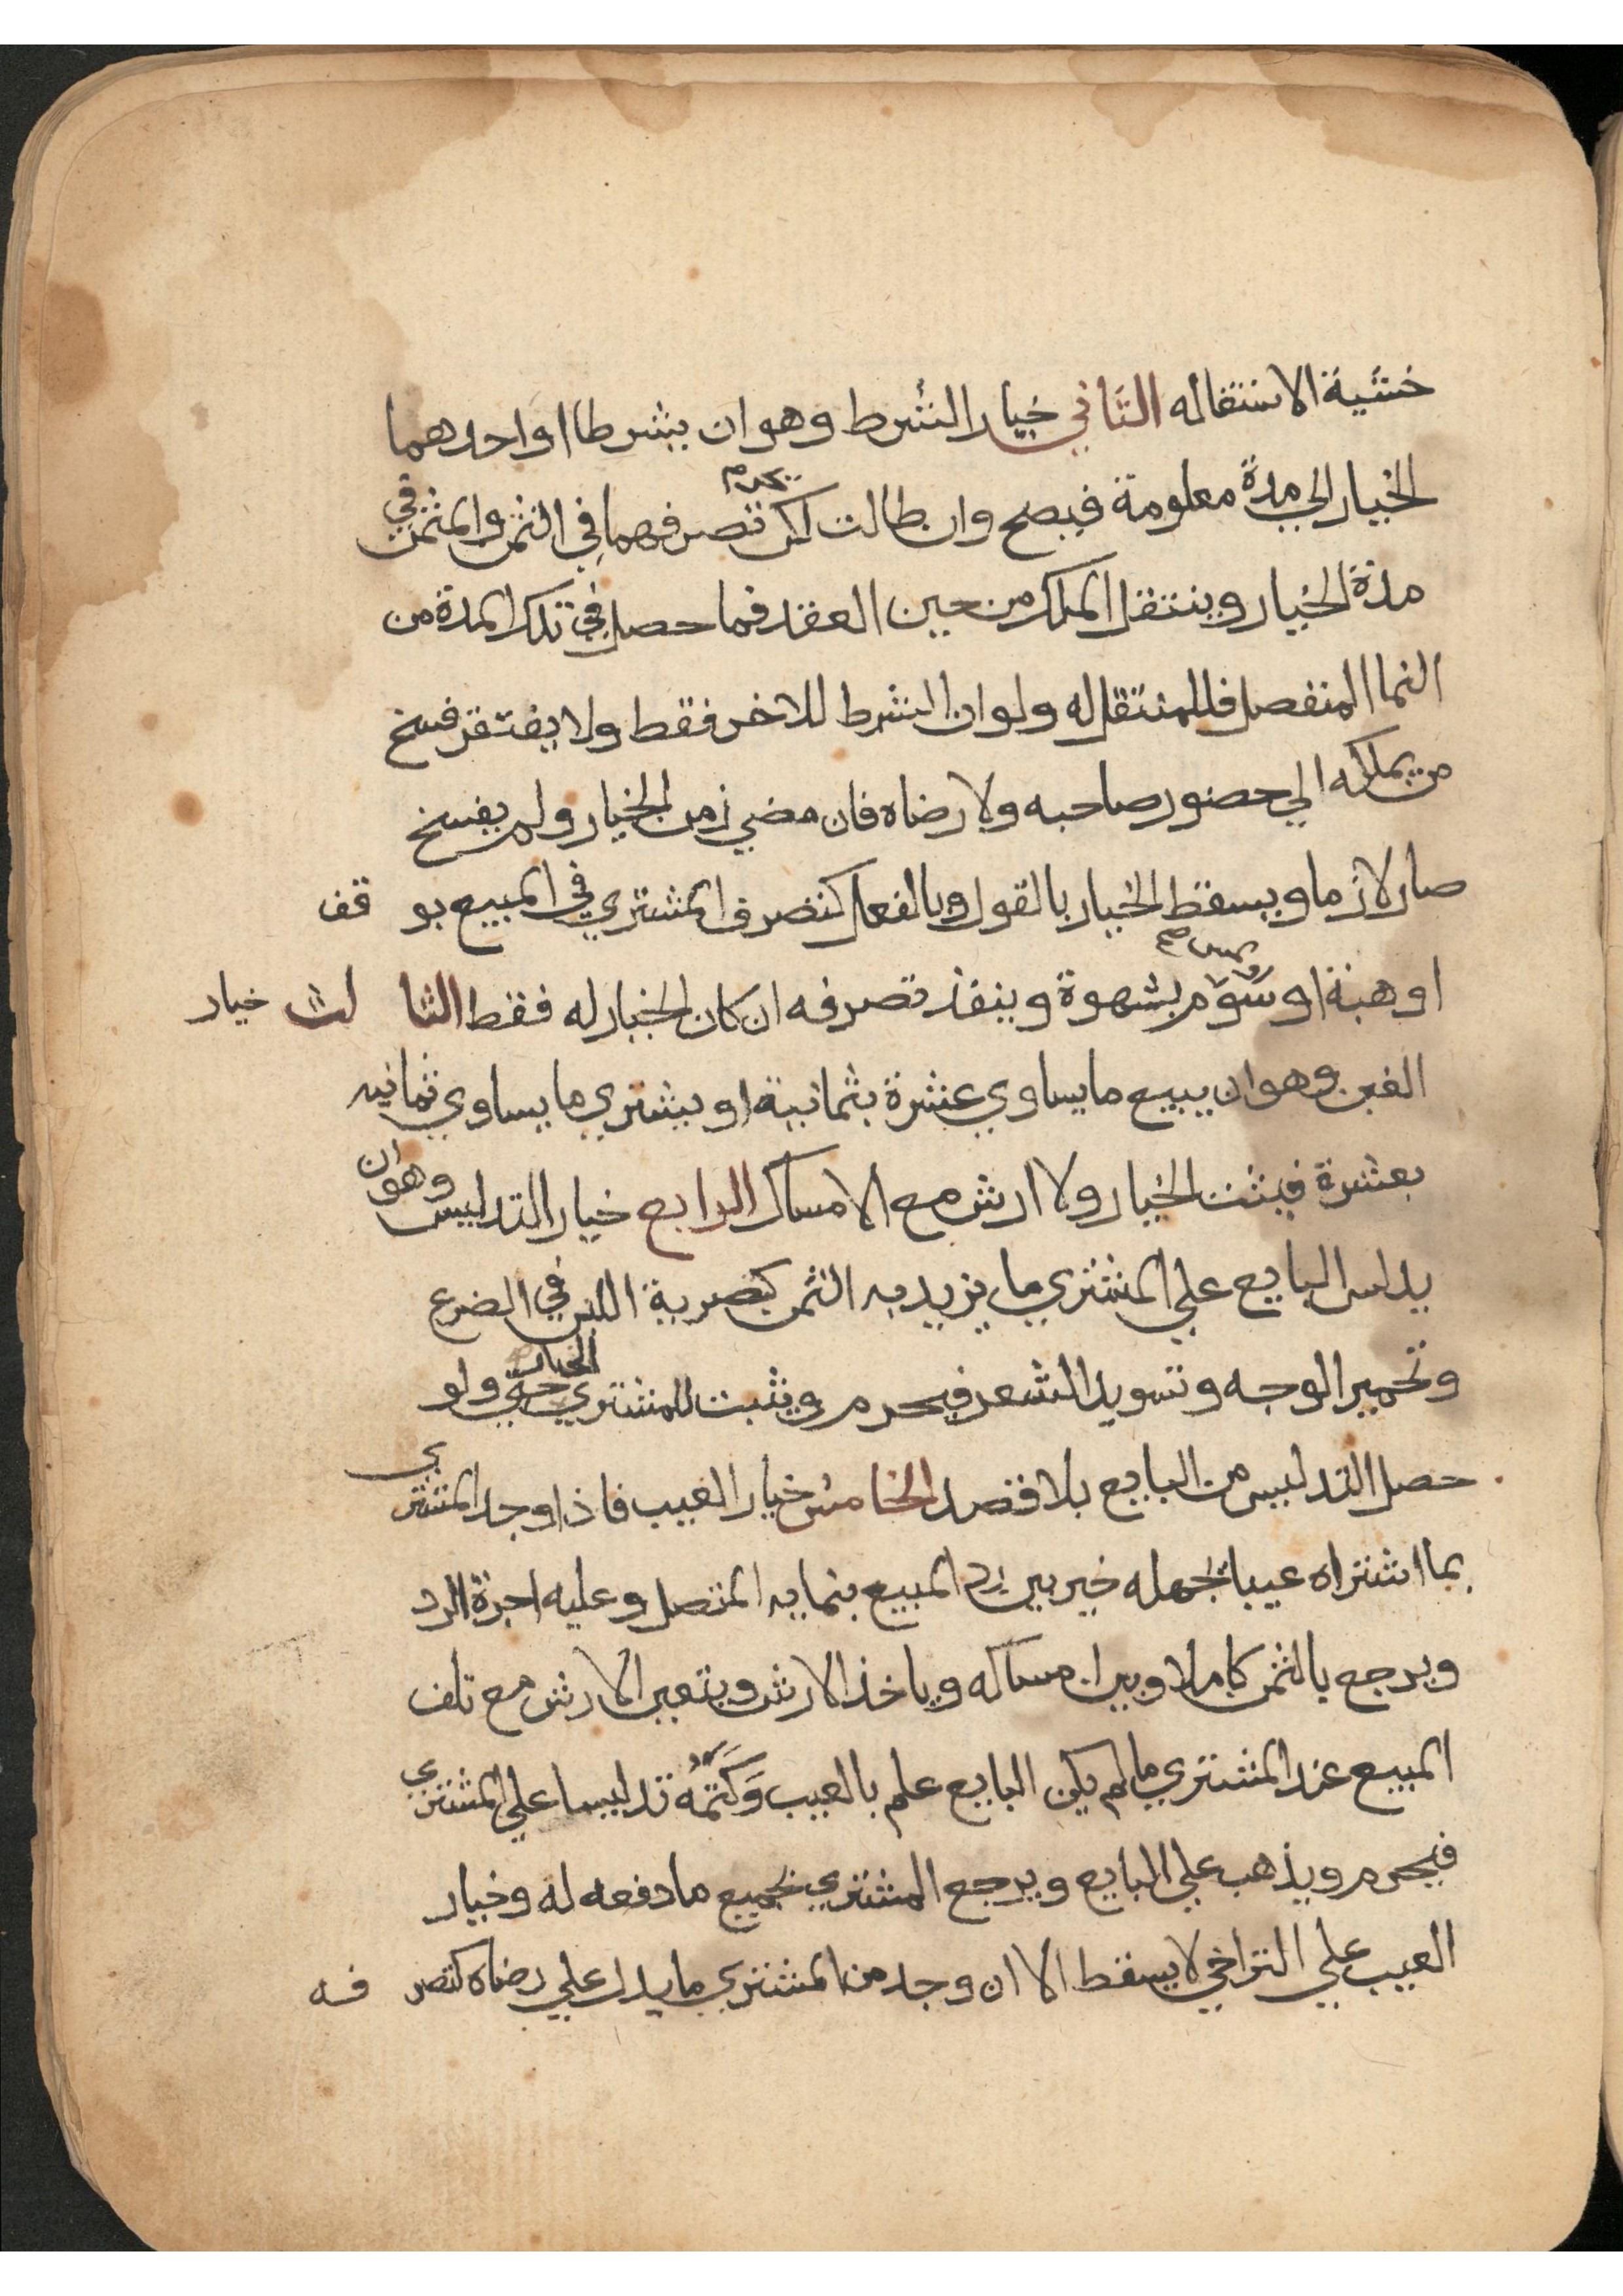 خشية الاستقاله الثاني خيار الشرط وهو ان يشرطا او احدهما
الخيار الي مدة معلومة فيصح وان طالت لكن يحرم تصرفهما في الثمن والمثمن في
مدة الخيار وينتقل الملك من حين العقد فما حصل في تلك المدة من
النما المنفصل فللمنتقل له ولو ان الشرط للاخر فقط ولا يفتقر فسخ
من يملكه الي حضور صاحبه ولا رضاه فان مضي زمن الخيار ولم يفسخ
صار لازما ويسقط الخيار بالقول وبالفعل كتصرف المشتري في المبيع بوقف
او هبة او سوم او لمس بشهوة وينفذ تصرفه ان كان الخيار له فقط الثالث خيار
الغبن وهو ان يبيع ما يساوي عشرة بثمانية او يشتري ما يساوي ثمانيه
بعشرة فيثبت الخيار ولا ارش مع الامساك الرابع خيار التدليس وهو ان
يدلس البايع علي المشتري ما يزيد به الثمن كتصرية اللبن في الضرع
وتحمير الوجه وتسويد الشعر فيحرم ويثبت للمشتري الخيار حتي ولو
حصل التدليس من البايع بلا قصد الخامس خيار العيب فاذا وجد المشتري
بما اشتراه عيبا يجهله خير بين رد المبيع بنمايه المتصل وعليه اجرة الرد
ويرجع بالثمن كاملا وبين امساكه وياخذ الارش ويتعين الارش مع تلف
المبيع عند المشتري ما لم يكن البايع علم بالعيب وَكَتَمَهُ تدليسا علي المشتري
فيحرم ويذهب علي البايع ويرجع المشتري بجميع ما دفعه له وخيار
العيب علي التراخي لا يسقط الا ان وجد من المشتري ما يدل علي رضاه كتصرفه